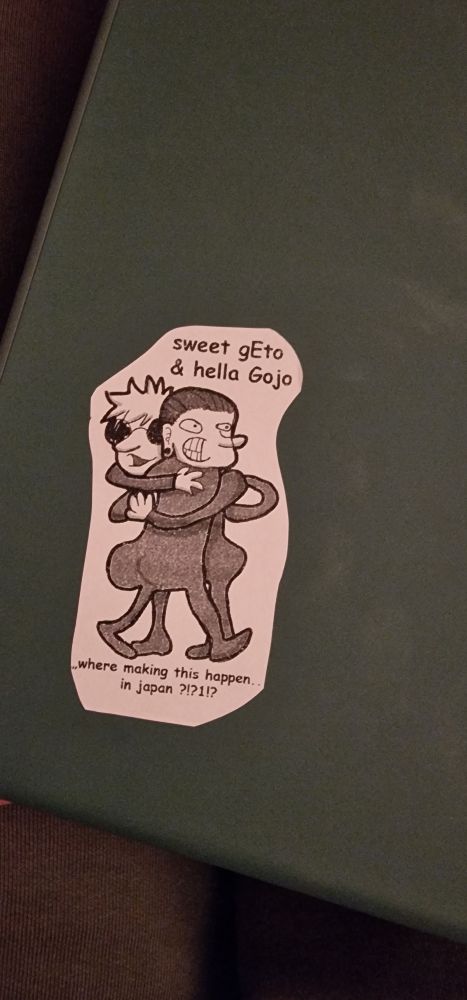 sweet gEto
& hella Gojo
„where making this happen..
in japan ?!?1!?